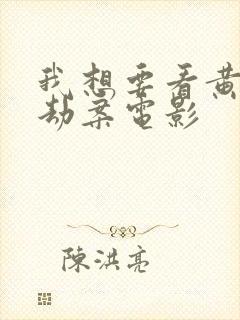 我想要看黄
劫案電影
陳洪亮